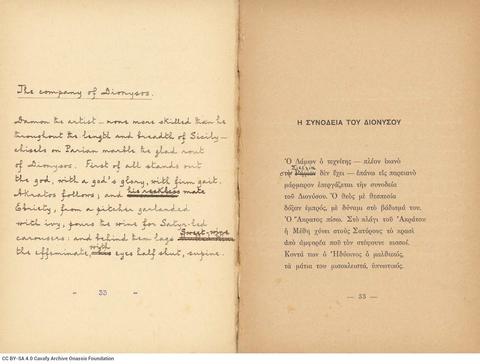 The company of Dionysos.
Damon the artist – none more skilled than he
throughout the length and breadth of Sicily –
chisels on Parian marble the glad rout
of Dionysos. First of all stands out
the god, with a god's glory, with firm gait.
Akratos follows; and his reckless mate
Ebriety, from a pitcher garlanded
with ivy, pours the wine for Satyr-led
carousers: and behind them lags Sweet-wine
the effeminate, with eyes half shut, supine.
- 33 -
Η ΣΥΝΟΔΕΙΑ ΤΟΥ ΔΙΟΝΥΣΟΥ
Ὁ Δάμων ὁ τεχνίτης — πλέον ἱκανὸ
στὴν δὲν ἔχει — ἐπάνω εἰς παρειανὸ
μάρμαρον ἐπεργάζεται τὴν συνοδεία
τοῦ Διονύσου. Ὁ θεὸς μὲ θεσπεσία
δόξαν ἐμπρός, μὲ δύναμι στὸ βάδισμά του.
Ὁ Ἄκρατος πίσω. Στὸ πλάγι τοῦ Ἀκράτου
ἡ Μέθη χύνει στοὺς Σατύρους τὸ κρασὶ
ἀπὸ ἀμφορέα ποὺ τὸν στέφουνε κισσοί.
Κοντά των ὁ Ἡδύοινος ὁ μαλθακός,
τὰ μάτια του μισοκλειστά, ὑπνωτικός.
— 33 —
CC BY-SA 4.0 Cavafy Archive Onassis Foundation